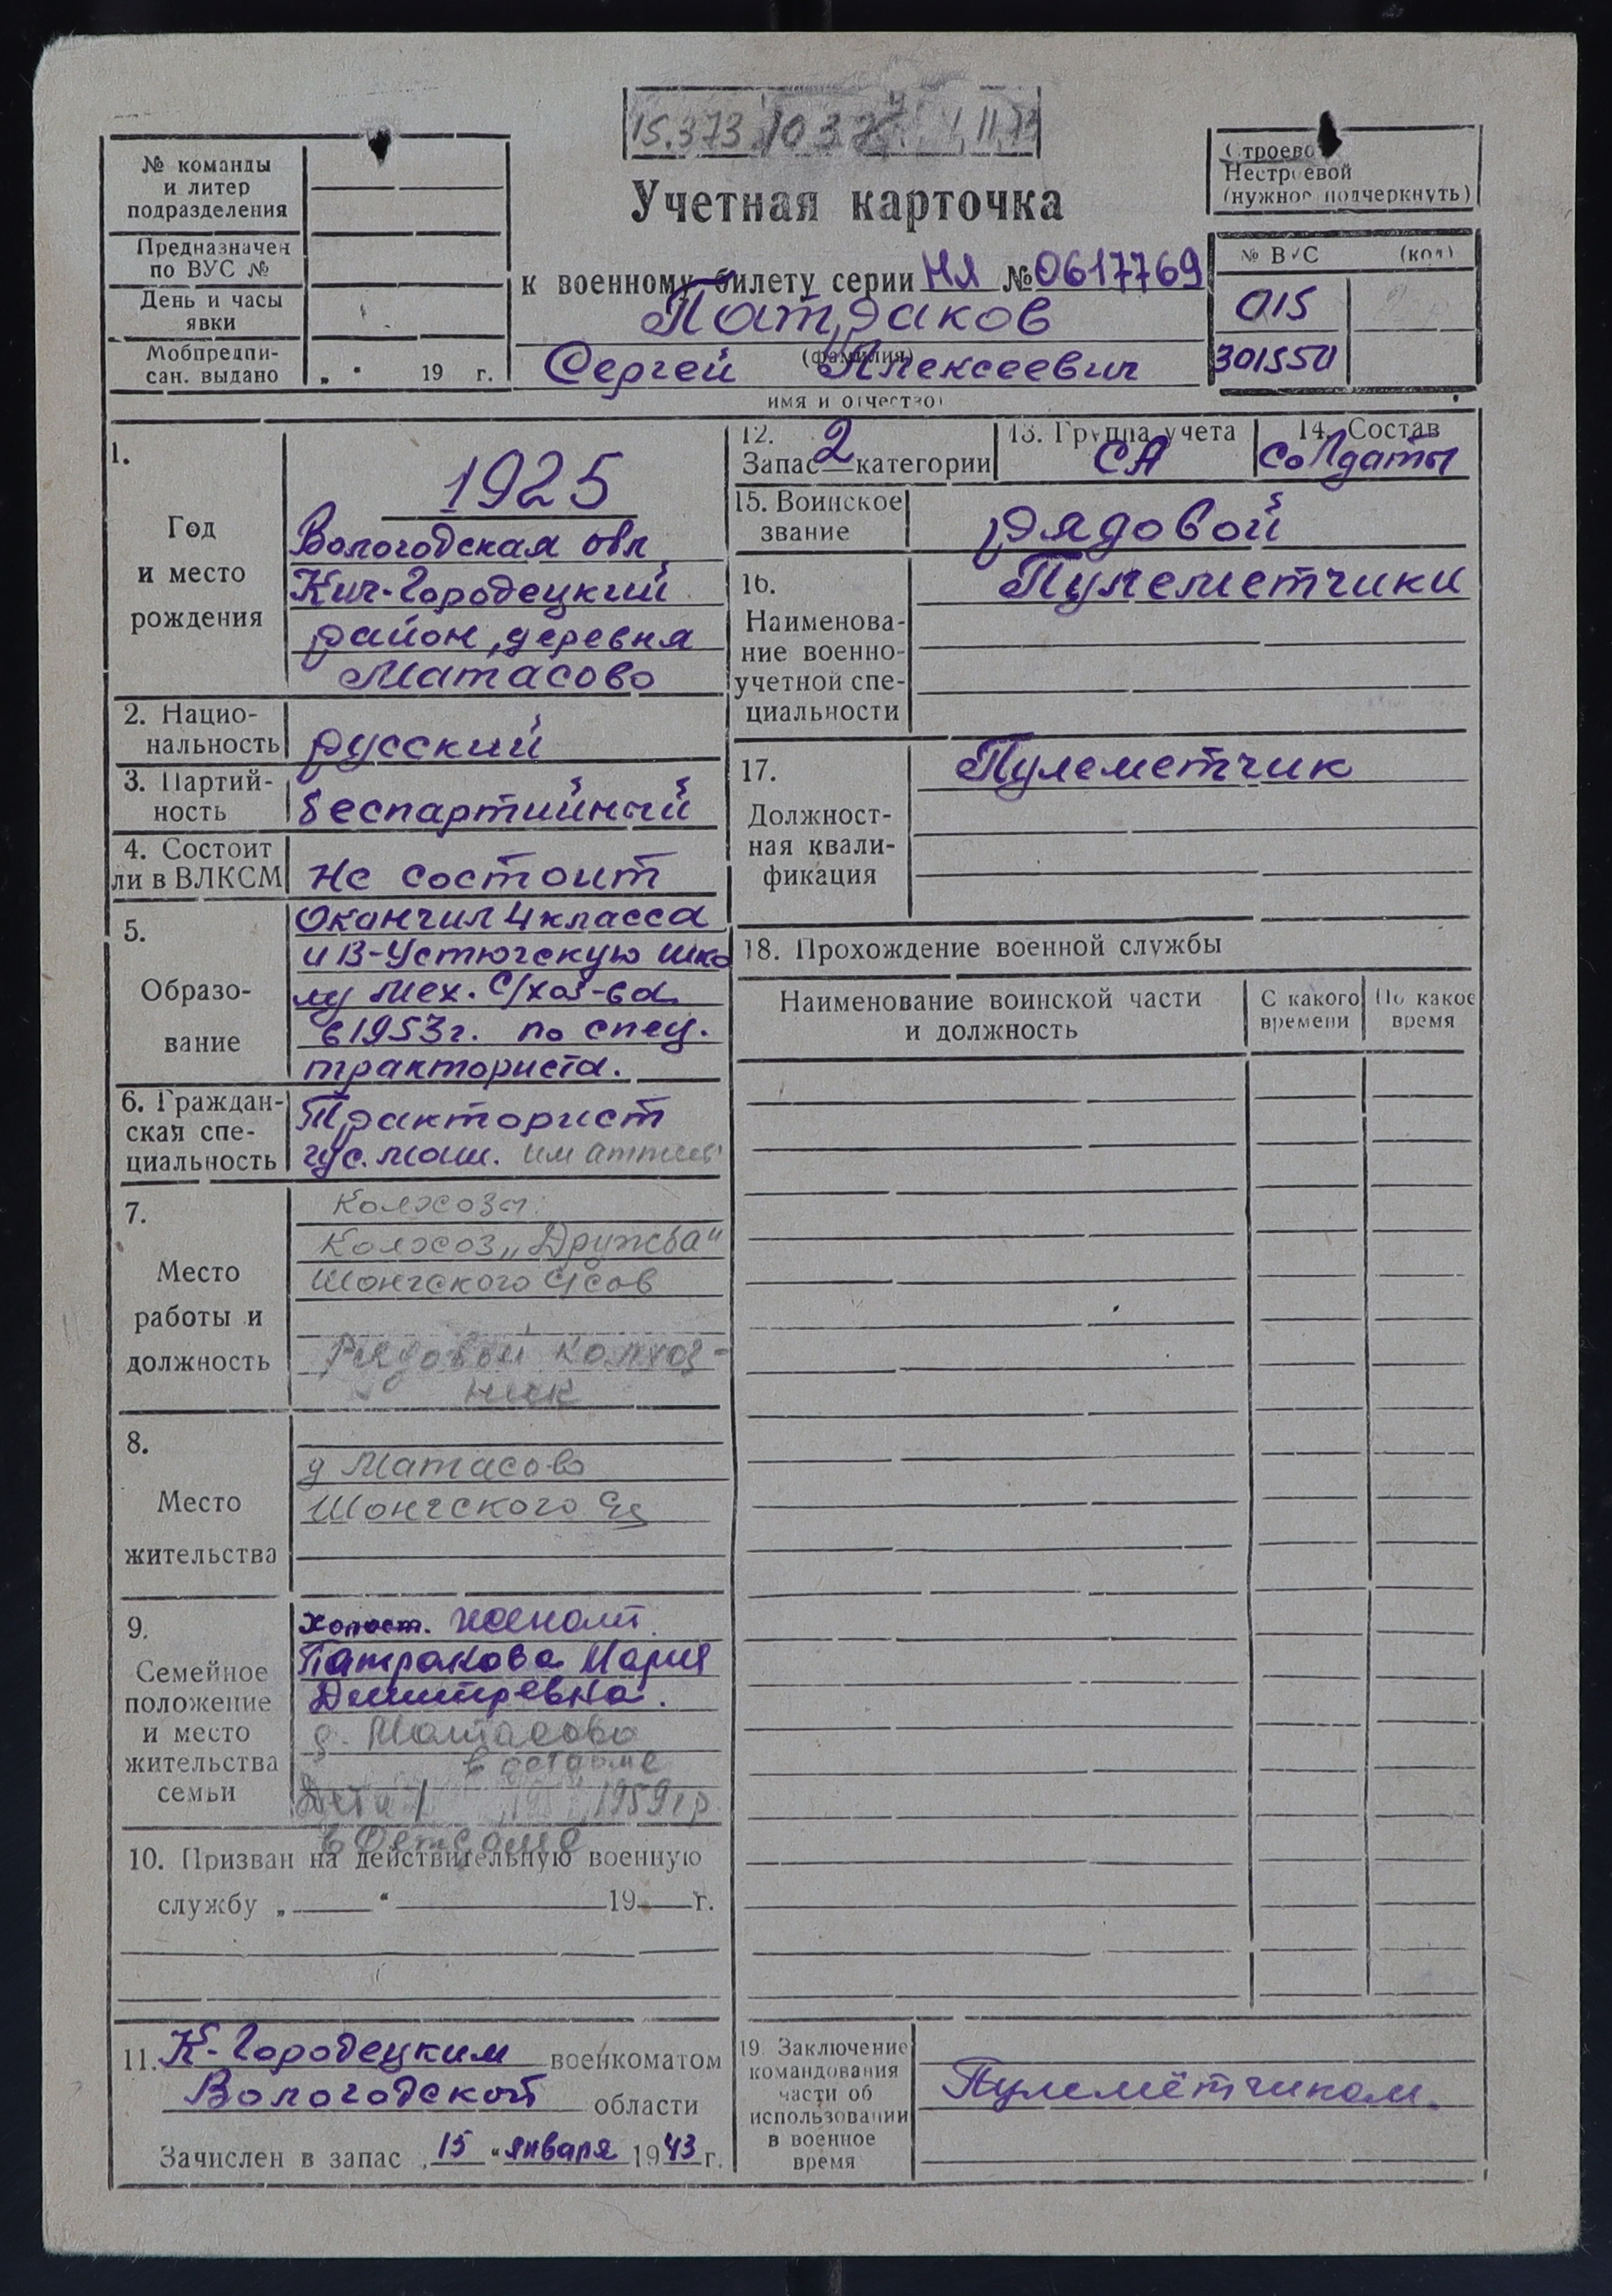 15.373 1037 11.73
№ команды
и литер
подразделения
Предназначен
по ВУС №
День и часы
явки
Мобпредпи-
сан. выдано „ “ 19 г.
Учетная карточка
к военному билету серии НЯ № 0617769
Патраков
(фамилия)
Сергей Алексеевич
имя и отчество)
Строевой
Нестроевой
(нужное подчеркнуть)
№ ВУС (код)
015
301550
1.
Год
и место
рождения
1925
Вологодская обл
Кич-Городецкий
район, деревня
Матасово
2. Нацио-
нальность
русский
3. Партий-
ность
беспартийный
4. Состоит
ли в ВЛКСМ
не состоит
5.
Образо-
вание
Окончил 4 класса
и В-Устюгскую шко
лу мех. С/хоз-ва
в 1953г. по спец.
тракториста.
6. Граждан-
ская спе-
циальность
Тракторист
гус. маш.
7.
Место
работы и
должность
Колхозы
Колхоз „Дружба“
Шонгского с/сов
Рядовой колхоз-
ник
8.
Место
жительства
д Матасово
Шонгского с/с
9.
Семейное
положение
и место
жительства
семьи
Холост. женат.
Патракова Мария
Дмитревна.
д. Матасово
в детдоме
Дети 1 1959 гр.
в Детдоме
10. Призван на действительную военную
службу „ “ 19 г.
11. К-Городецким военкоматом
Вологодской области
Зачислен в запас „15“ января 1943 г.
12.
Запас 2 категории
13. Группа учета
СА
14. Состав
Солдаты
15. Воинское
звание
рядовой
16.
Наименова-
ние военно-
учетной спе-
циальности
Пулеметчики
17.
Должност-
ная квали-
фикация
Пулеметчик
18. Прохождение военной службы
Наименование воинской части
и должность
С какого
времени
По какое
время
19. Заключение
командования
части об
использовании
в военное
время
Пулемётчиком.